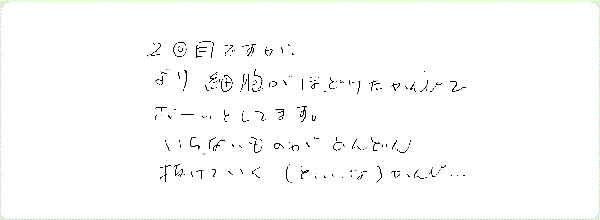 2回目ですが、
より細胞がほどけたかんじで
ボーっとしてます。
いらないものがどんどん
抜けていく(といいな)かんじ…